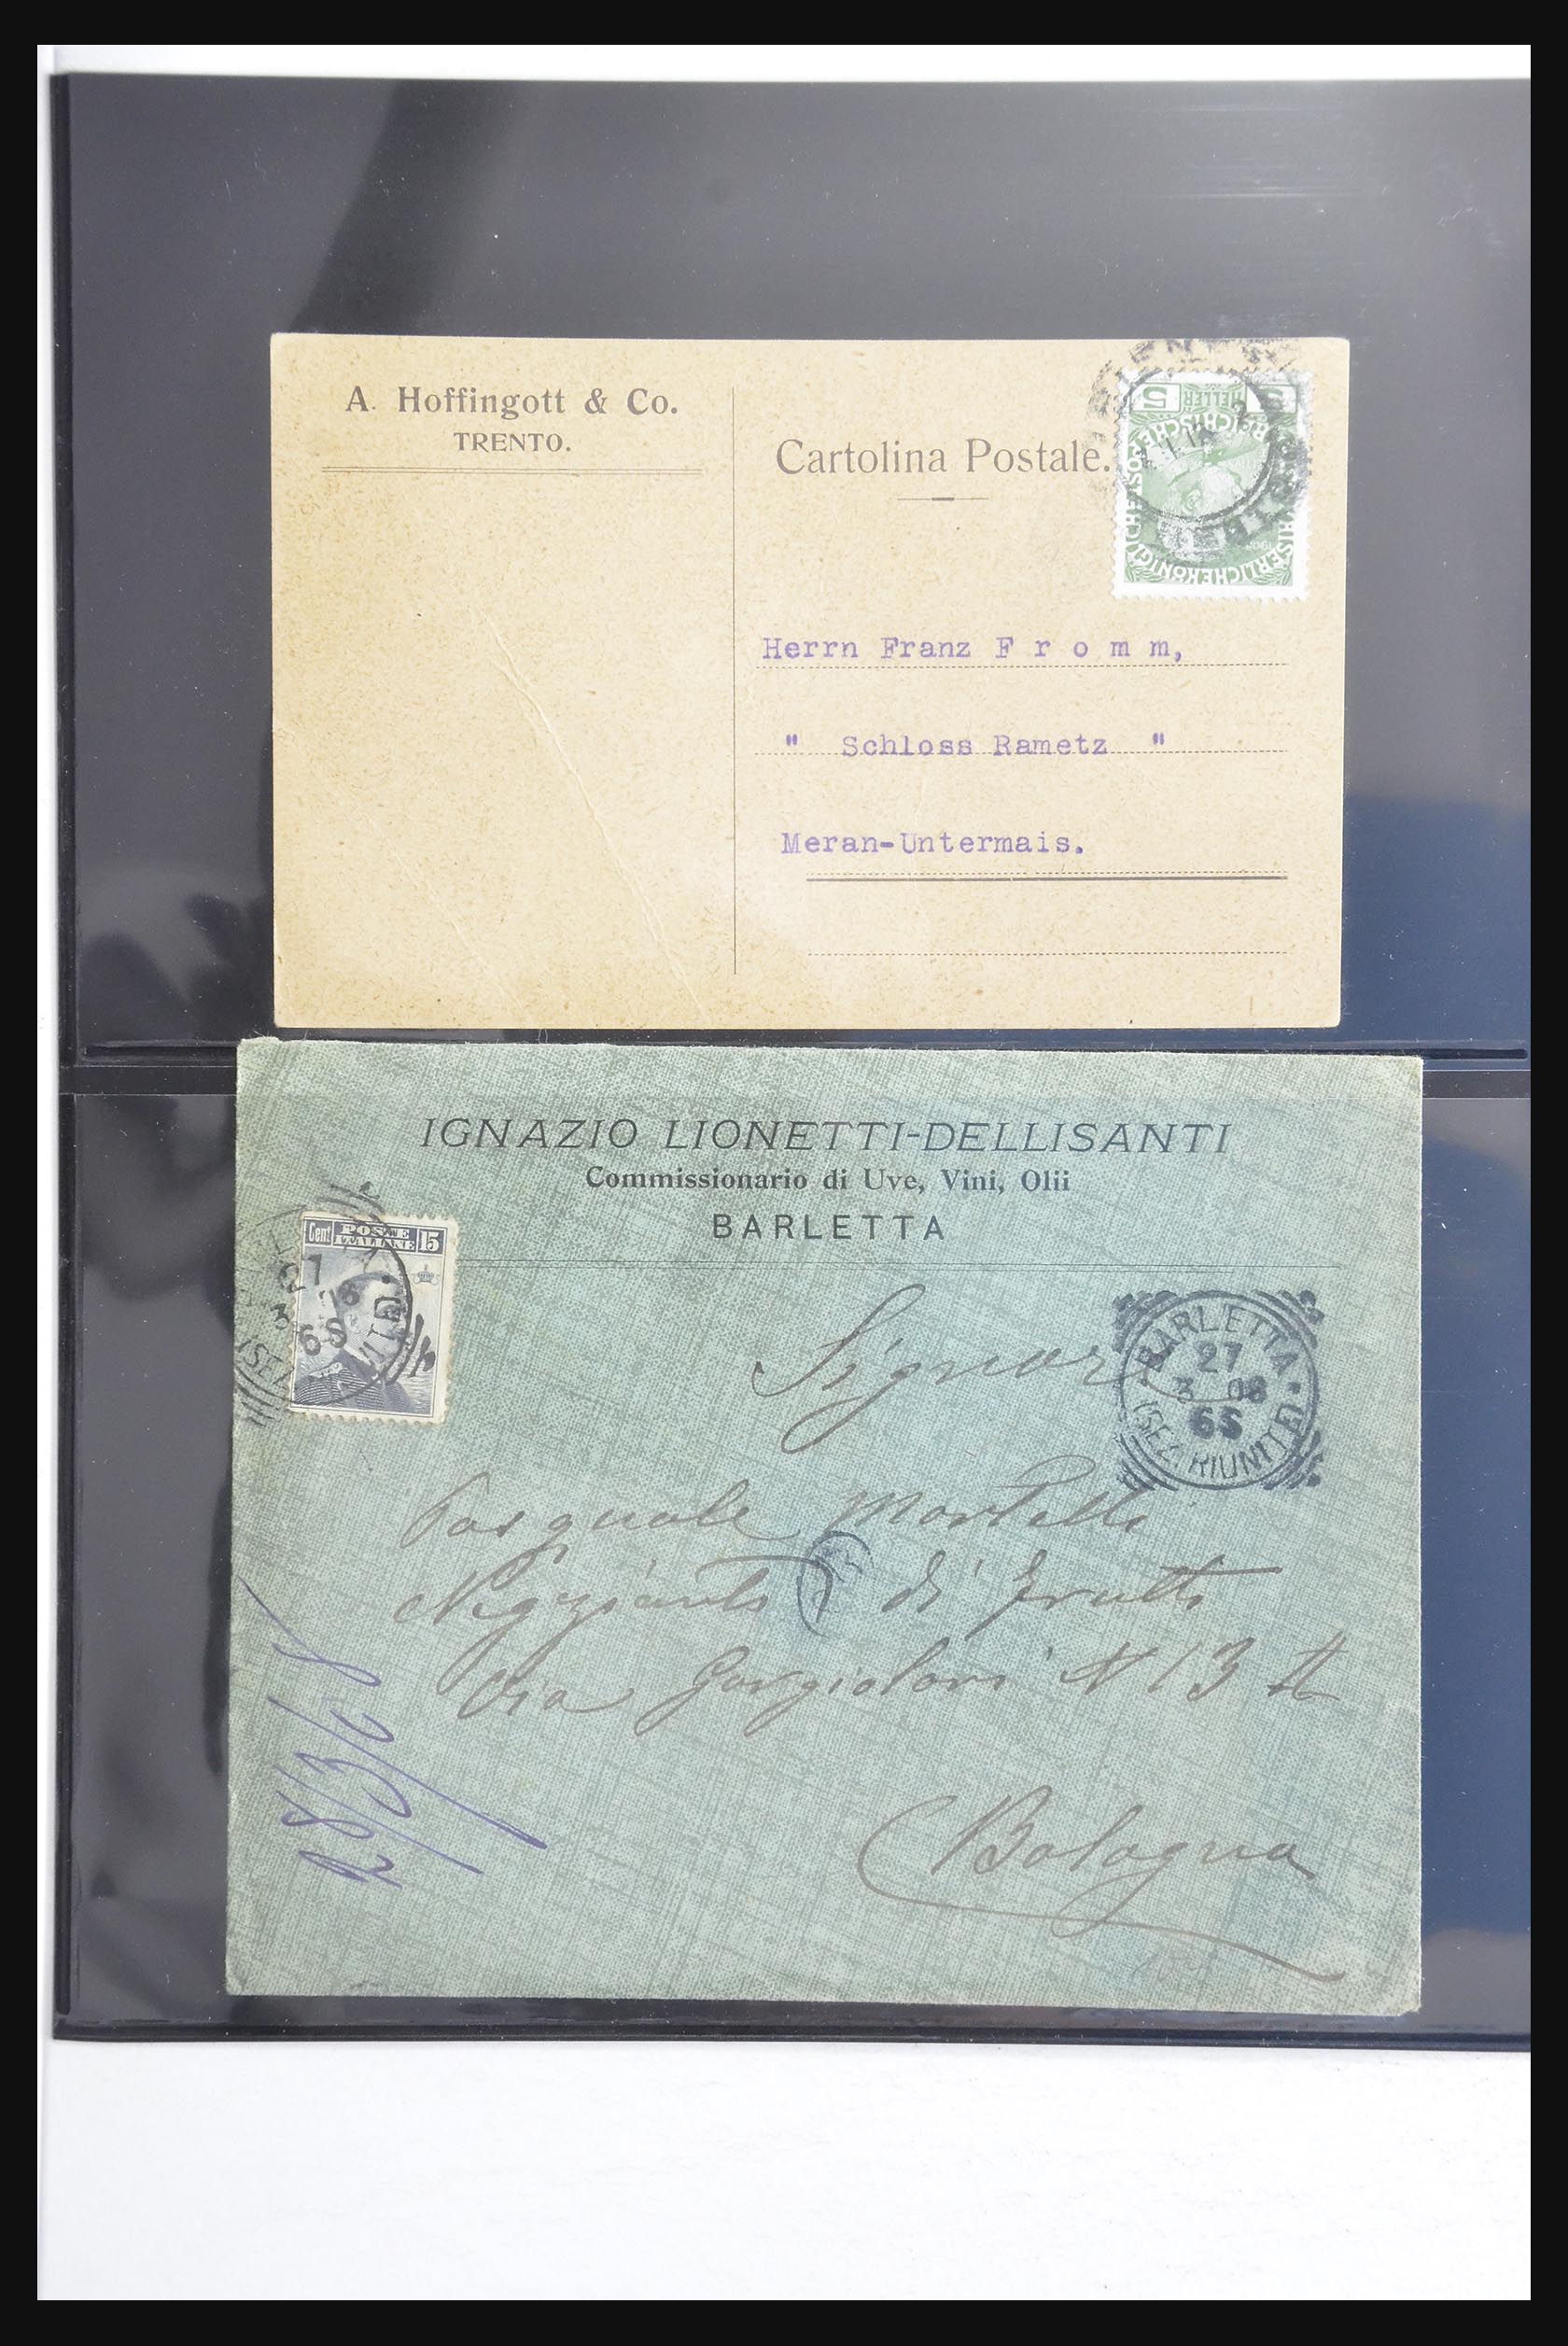 A. Hoffingott & Co.
TRENTO.
Cartolina Postale.
5 HELLER 5
KAISERLICHEKÖNIGLICHE POST
Herrn Franz F r o m m,
" Schloss Rametz "
Meran-Untermais.
IGNAZIO LIONETTI-DELLISANTI
Commissionario di Uve, Vini, Olii
BARLETTA
Cent POSTE ITALIANE 15
27
3
6S
BARLETTA
27
3 08
6S
(SEZ. RIUNITE)
Signor
Pasquale Martelli
Negoziante di frutta
Via N 13 A
Bologna
28/3/08